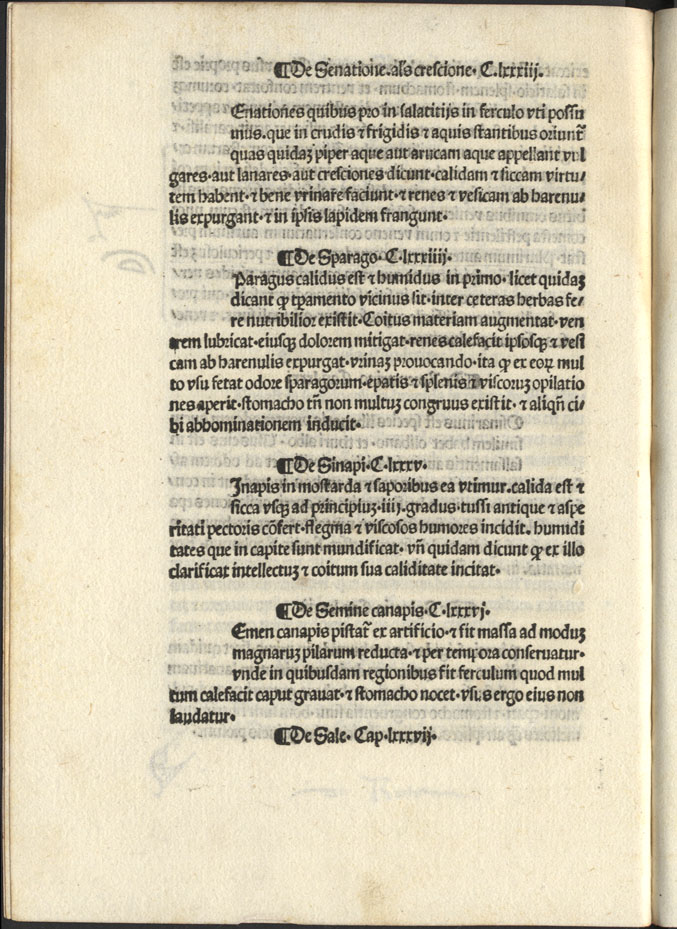 ¶De Senatione. als crescione. C. lxxxiij.
Enationes quibus pro in salatitijs in ferculo vti possu
mus. que in crudis ⁊ frigidis ⁊ aquis stantibus oriunt̃
quas quidaꝫ piper aque aut arucam aque appellant vul
gares. aut lanares. aut cresciones dicunt. calidam ⁊ siccam virtu⸗
tem habent. ⁊ bene vrinare faciunt. ⁊ renes ⁊ vesicam ab harenu⸗
lis expurgant. ⁊ in ip̃sis lapidem frangunt.
¶De Sparago. C. lxxxiiij.
Paragus calidus est ⁊ humidus in primo. licet quidaꝫ
dicant ꝙ tp̃amento vicinus sit. inter ceteras herbas fe⸗
re nutribilior existit. Coitus materiam augmentat. ven
trem lubricat. eiusqꝫ dolorem mitigat. renes calefacit ipsosqꝫ ⁊ vesi
cam ab harenulis expurgat. vrinaꝫ prouocando. ita ꝙ ex eoꝝ mul
to vsu fetat odore sparagorum. epatis ⁊ splenis ⁊ viscoruꝫ opilatio
nes aperit. stomacho tñ non multuꝫ congruus existit. ⁊ aliqñ ci⸗
bi abbominationem inducit.
¶De Sinapi. C. lxxxv.
Inapis in mostarda ⁊ saporibus ea vtimur. calida est ⁊
sicca vsqꝫ ad principiuꝫ. iiij. gradus. tussi antique ⁊ aspe
ritati pectoris cõfert. flegma ⁊ viscosos humores incidit. humidi
tates que in capite sunt mundificat. vñ quidam dicunt ꝙ ex illo
clarificat intellectuꝫ ⁊ coitum sua caliditate incitat.
¶De Semine canapis. C. lxxxvj.
Emen canapis pistat̃ ex artificio. ⁊ fit massa ad moduꝫ
magnaruꝫ pilarum reducta. ⁊ per tempora conservatur.
vnde in quibusdam regionibus fit ferculum quod mul
tum calefacit caput grauat. ⁊ stomacho nocet. vsus ergo eius non
laudatur.
¶De Sale. Cap. lxxxvij.